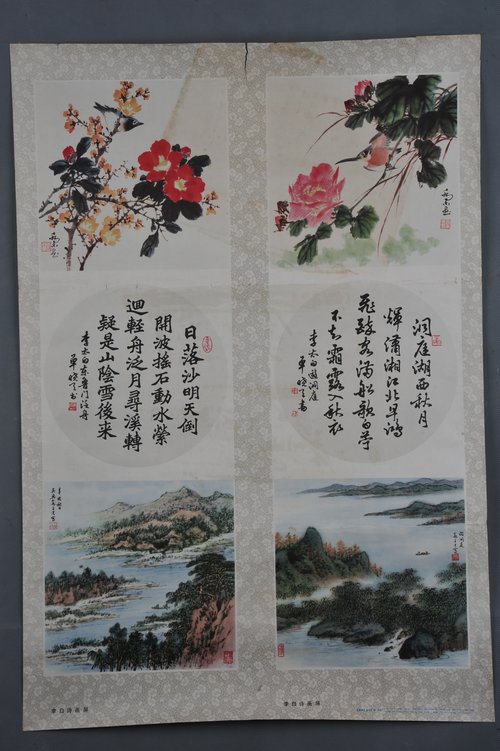 日落沙明天倒
開波搖石動水縈
迴輕舟泛月尋溪轉
疑是山陰雪後來
李太白東魯門泛舟
單曉天書
洞庭湖西秋月
輝瀟湘江北早鴻
飛醉客滿船歌白苧
不知霜露入秋衣
李太白遊洞庭
單曉天書
李白诗画屏
李白诗画屏